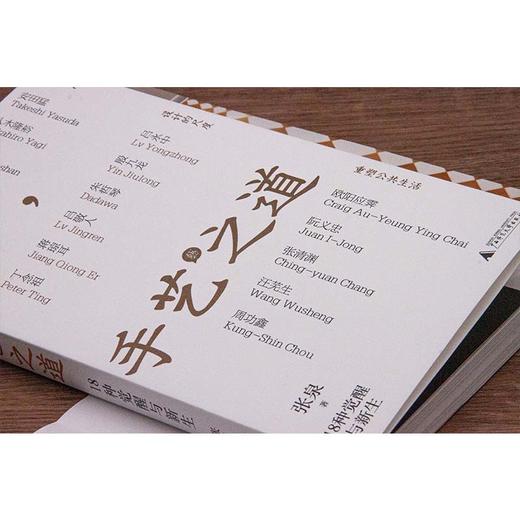 手艺之道
设计的尺度
重塑公共生活
Takeshi Yasuda
Yagi
吕永中
Lv Yongzhong
殷九龙
Yin Jiulong
朱哲琴
Dadawa
吕敬人
Lv Jingren
蒋琼耳
Jiang Qiong Er
丁念祖
Peter Ting
欧阳应霁
Craig Au-Yeung Ying Chai
阮义忠
Juan I-Jong
张清渊
Ching-yuan Chang
汪芜生
Wang Wusheng
周功鑫
Kung-Shin Chou
张泉
著
18种觉醒
与新生
之道
18种觉醒与新生